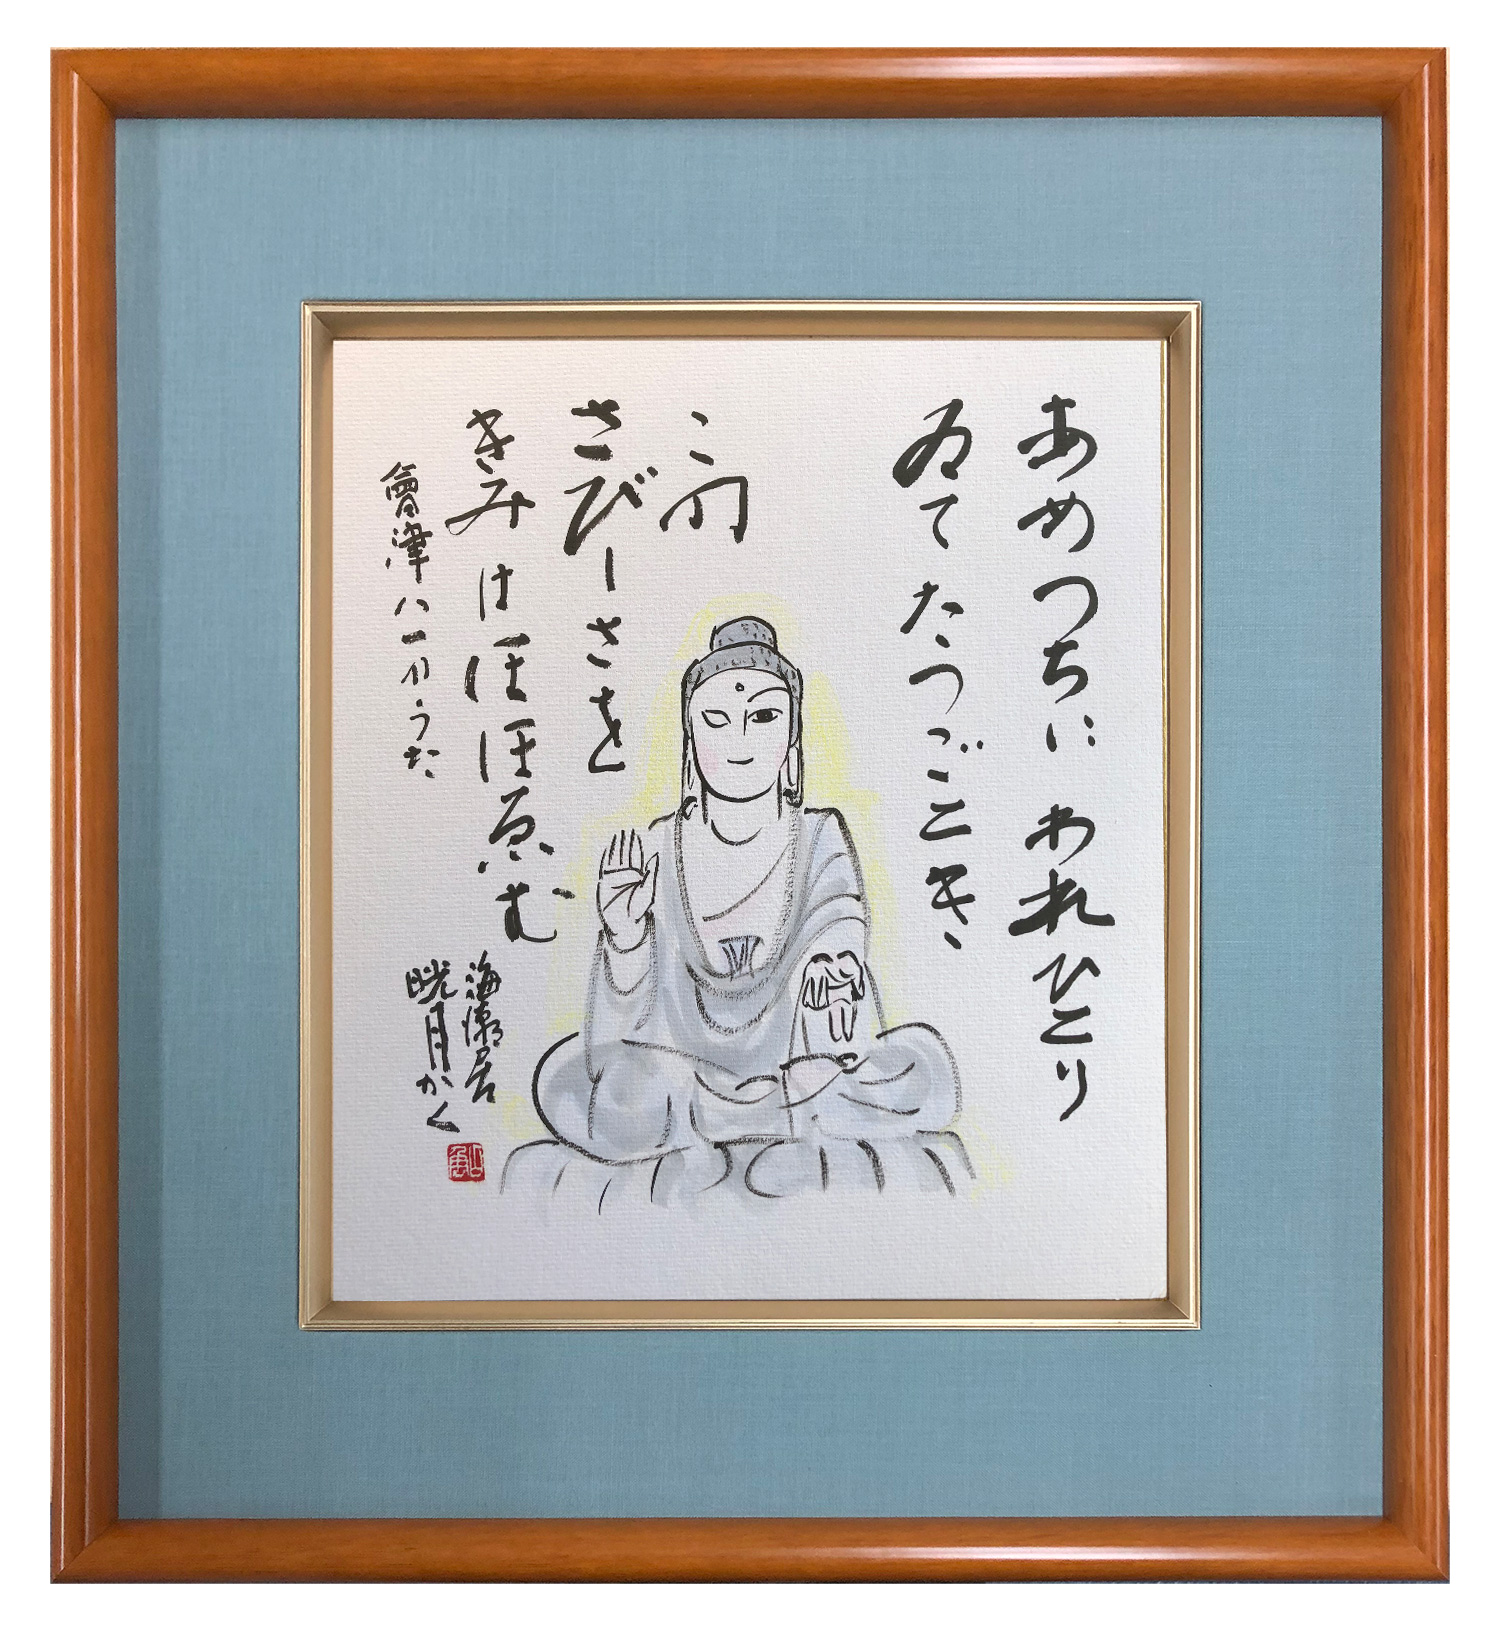 あめつちに われひとり
ゐてたつごとき
この
さびしさを
きみはほほゑむ
會津八一がうた
海潮居
晄月かく